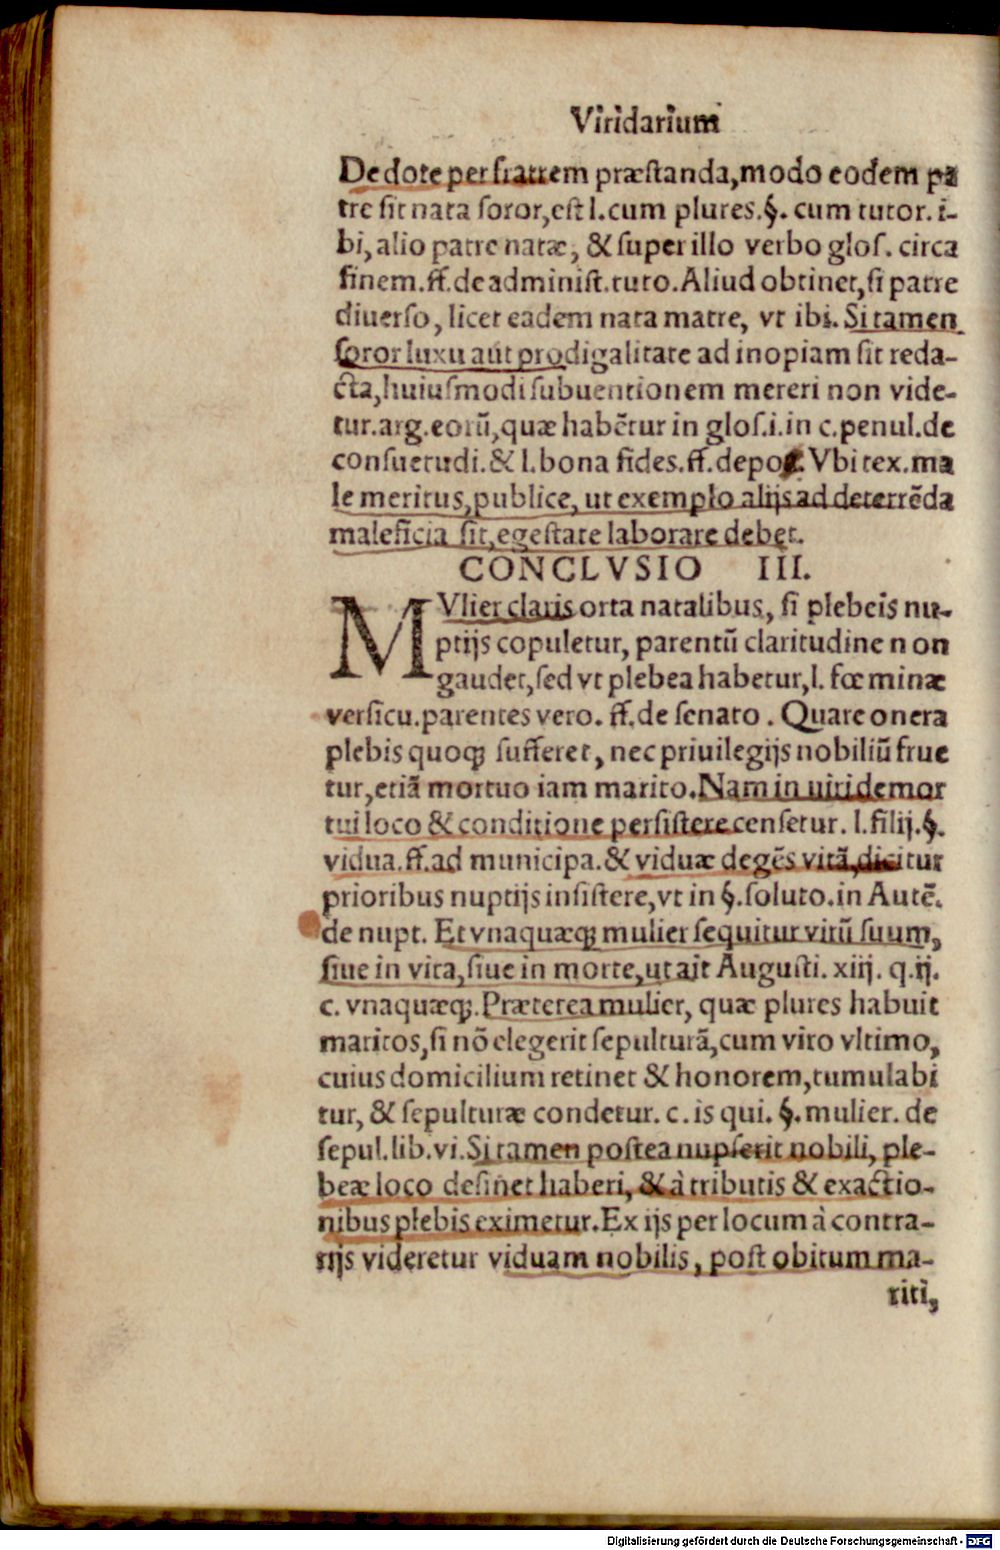 Viridarium
De dote per fratrem præstanda, modo eodem pa
tre sit nata soror, est l. cum plures. §. cum tutor. i-
bi, alio patre natæ, & super illo verbo glos. circa
finem. ff. de administ. tuto. Aliud obtinet, si patre
diuerso, licet eadem nata matre, vt ibi. Si tamen
soror luxu aut prodigalitate ad inopiam sit reda-
cta, huiusmodi subuentionem mereri non vide-
tur. arg. eorū, quæ habētur in glos. i. in c. penul. de
consuetudi. & l. bona fides. ff. depos. Vbi tex. ma
le meritus, publice, ut exemplo alijs ad deterrēda
maleficia sit, egestate laborare debet.
CONCLVSIO III.
MVlier claris orta natalibus, si plebeis nu-
ptijs copuletur, parentū claritudine non
gaudet, sed vt plebea habetur, l. fœminæ
versicu. parentes vero. ff. de senato. Quare onera
plebis quoq; sufferet, nec priuilegijs nobiliū frue
tur, etiā mortuo iam marito. Nam in uiri demor
tui loco & conditione persistere censetur. l. filij. §.
vidua. ff. ad municipa. & viduæ degēs vitā, dicitur
prioribus nuptijs insistere, vt in §. soluto. in Autē.
de nupt. Et vnaquæq; mulier sequitur virū suum,
siue in vita, siue in morte, ut ait Augusti. xiij. q. ij.
c. vnaquæq;. Præterea mulier, quæ plures habuit
maritos, si nō elegerit sepulturā, cum viro vltimo,
cuius domicilium retinet & honorem, tumulabi
tur, & sepulturæ condetur. c. is qui. §. mulier. de
sepul. lib. vi. Si tamen postea nupserit nobili, ple-
beæ loco desinet haberi, & à tributis & exactio-
nibus plebis eximetur. Ex ijs per locum à contra-
rijs videretur viduam nobilis, post obitum ma-
riti,
Digitalisierung gefördert durch die Deutsche Forschungsgemeinschaft - DFG